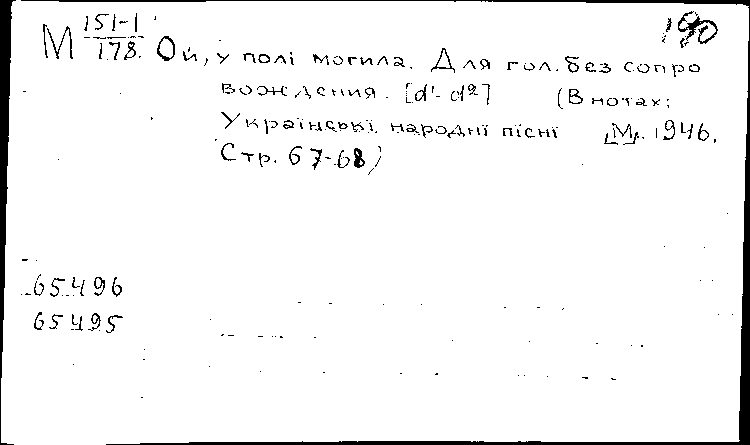 190
М 151-1/178. Ой, у полі могила. Для гол. без сопро
вождения. [d¹-d²] (В нотах:
Українські народні пісні М. 1946.
Стр. 67-68)
65496
65495